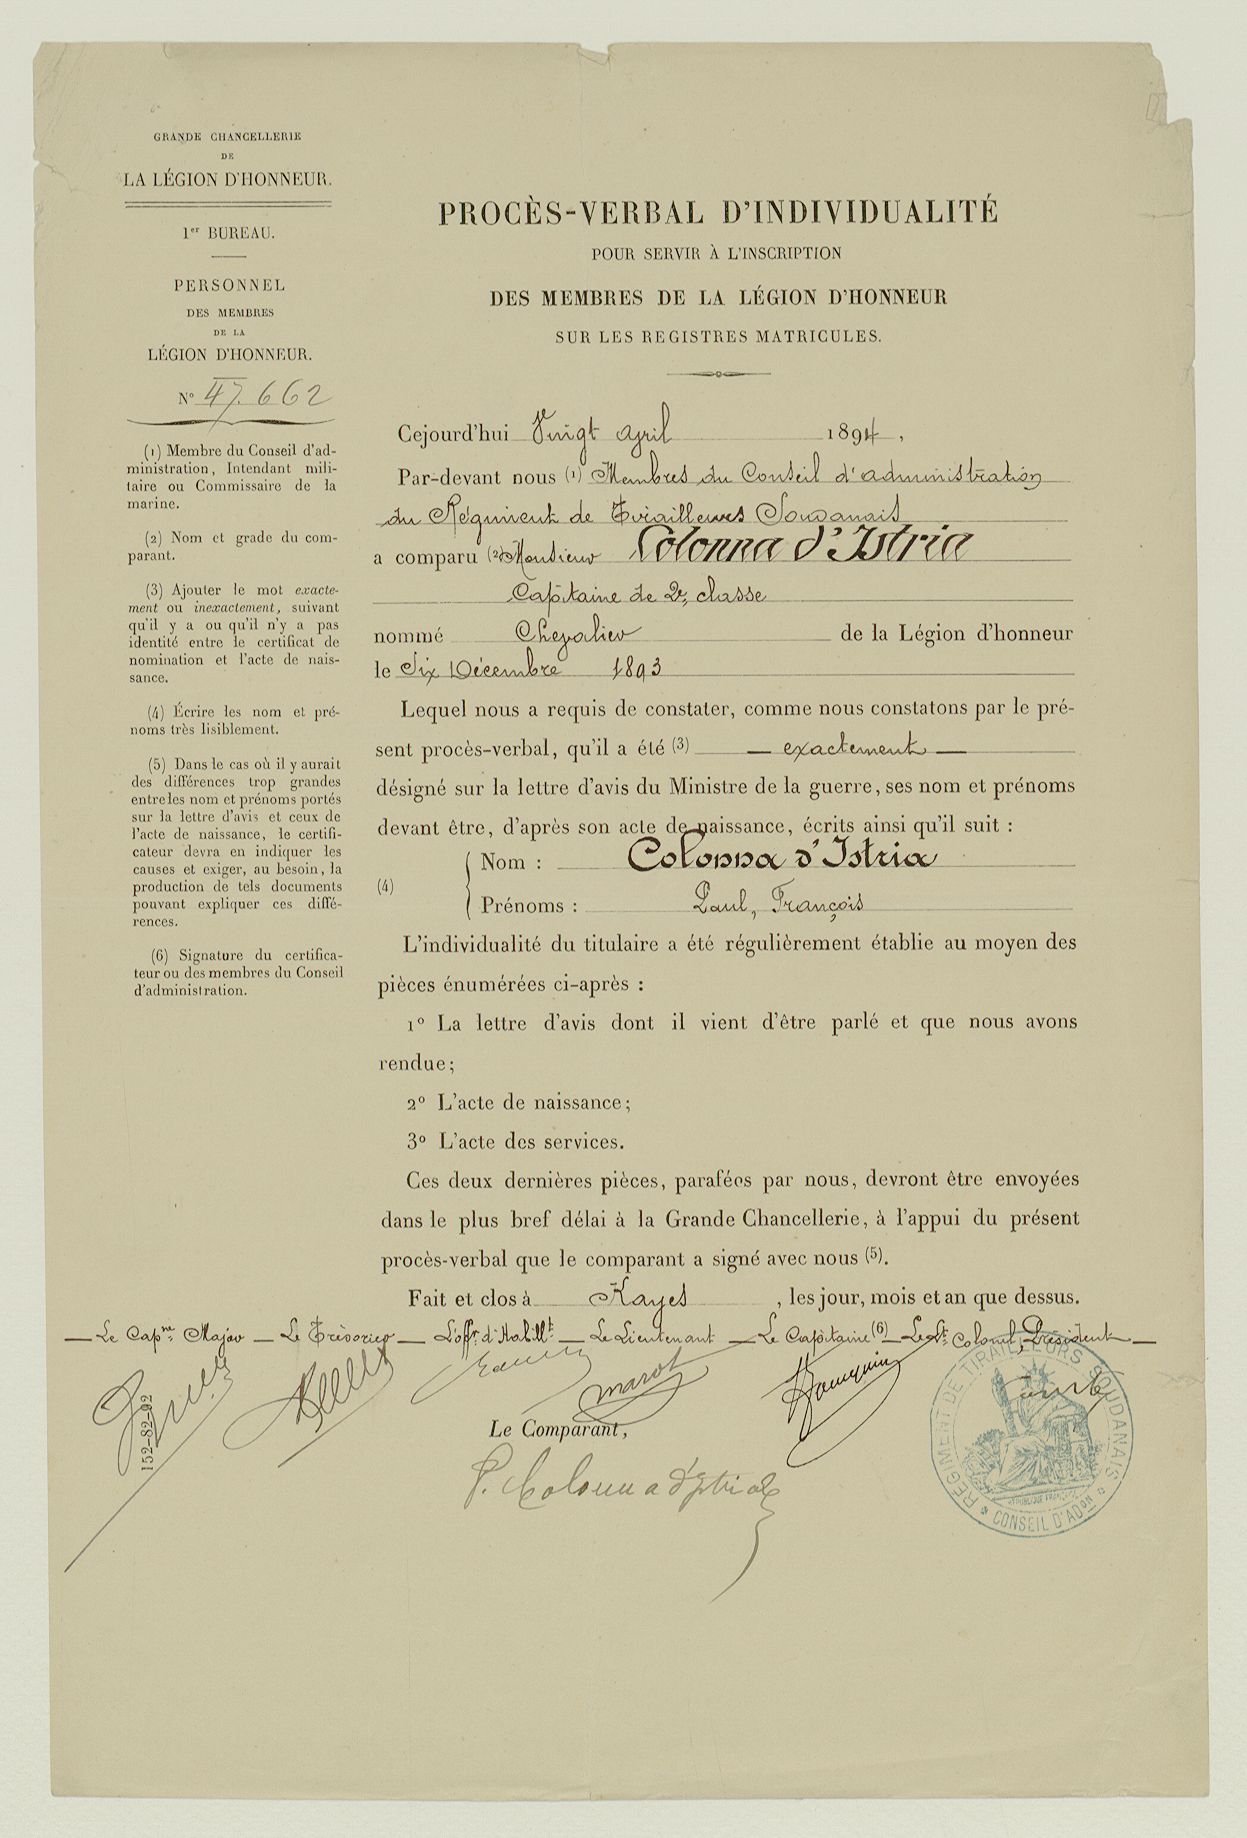 GRANDE CHANCELLERIE
DE
LA LÉGION D'HONNEUR.
1er BUREAU.
PERSONNEL
DES MEMBRES
DE LA
LÉGION D'HONNEUR.
N° 47.662
(1) Membre du Conseil d'ad-
ministration, Intendant mili-
taire ou Commissaire de la
marine.
(2) Nom et grade du com-
parant.
(3) Ajouter le mot exacte-
ment ou inexactement, suivant
qu'il y a ou qu'il n'y a pas
identité entre le certificat de
nomination et l'acte de nais-
sance.
(4) Écrire les nom et pré-
noms très lisiblement.
(5) Dans le cas où il y aurait
des différences trop grandes
entre les nom et prénoms portés
sur la lettre d'avis et ceux de
l'acte de naissance, le certifi-
cateur devra en indiquer les
causes et exiger, au besoin, la
production de tels documents
pouvant expliquer ces diffé-
rences.
(6) Signature du certifica-
teur ou des membres du Conseil
d'administration.
PROCÈS-VERBAL D'INDIVIDUALITÉ
POUR SERVIR À L'INSCRIPTION
DES MEMBRES DE LA LÉGION D'HONNEUR
SUR LES REGISTRES MATRICULES.
Cejourd'hui Vingt avril 1894,
Par-devant nous (1) Membres du Conseil d'administration
du Régiment de Tirailleurs Soudanais
a comparu (2) Monsieur Colonna d'Istria
Capitaine de 2e classe
nommé Chevalier de la Légion d'honneur
le Six Décembre 1893
Lequel nous a requis de constater, comme nous constatons par le pré-
sent procès-verbal, qu'il a été (3) — exactement —
désigné sur la lettre d'avis du Ministre de la guerre, ses nom et prénoms
devant être, d'après son acte de naissance, écrits ainsi qu'il suit :
(4) Nom : Colonna d'Istria
Prénoms : Paul, François
L'individualité du titulaire a été régulièrement établie au moyen des
pièces énumérées ci-après :
1° La lettre d'avis dont il vient d'être parlé et que nous avons
rendue;
2° L'acte de naissance;
3° L'acte des services.
Ces deux dernières pièces, parafées par nous, devront être envoyées
dans le plus bref délai à la Grande Chancellerie, à l'appui du présent
procès-verbal que le comparant a signé avec nous (5).
Fait et clos à Kayes, les jour, mois et an que dessus.
— Le Capne Major — Le Trésorier — L'offr d'Habillt — Le Lieutenant — Le Capitaine (6) — Le Lt Colonel, Président —
marot
152-82-92
Le Comparant,
P. Colonna d'Istria
RÉGIMENT DE TIRAILLEURS SOUDANAIS
RÉPUBLIQUE FRANÇAISE
* CONSEIL D'ADon *